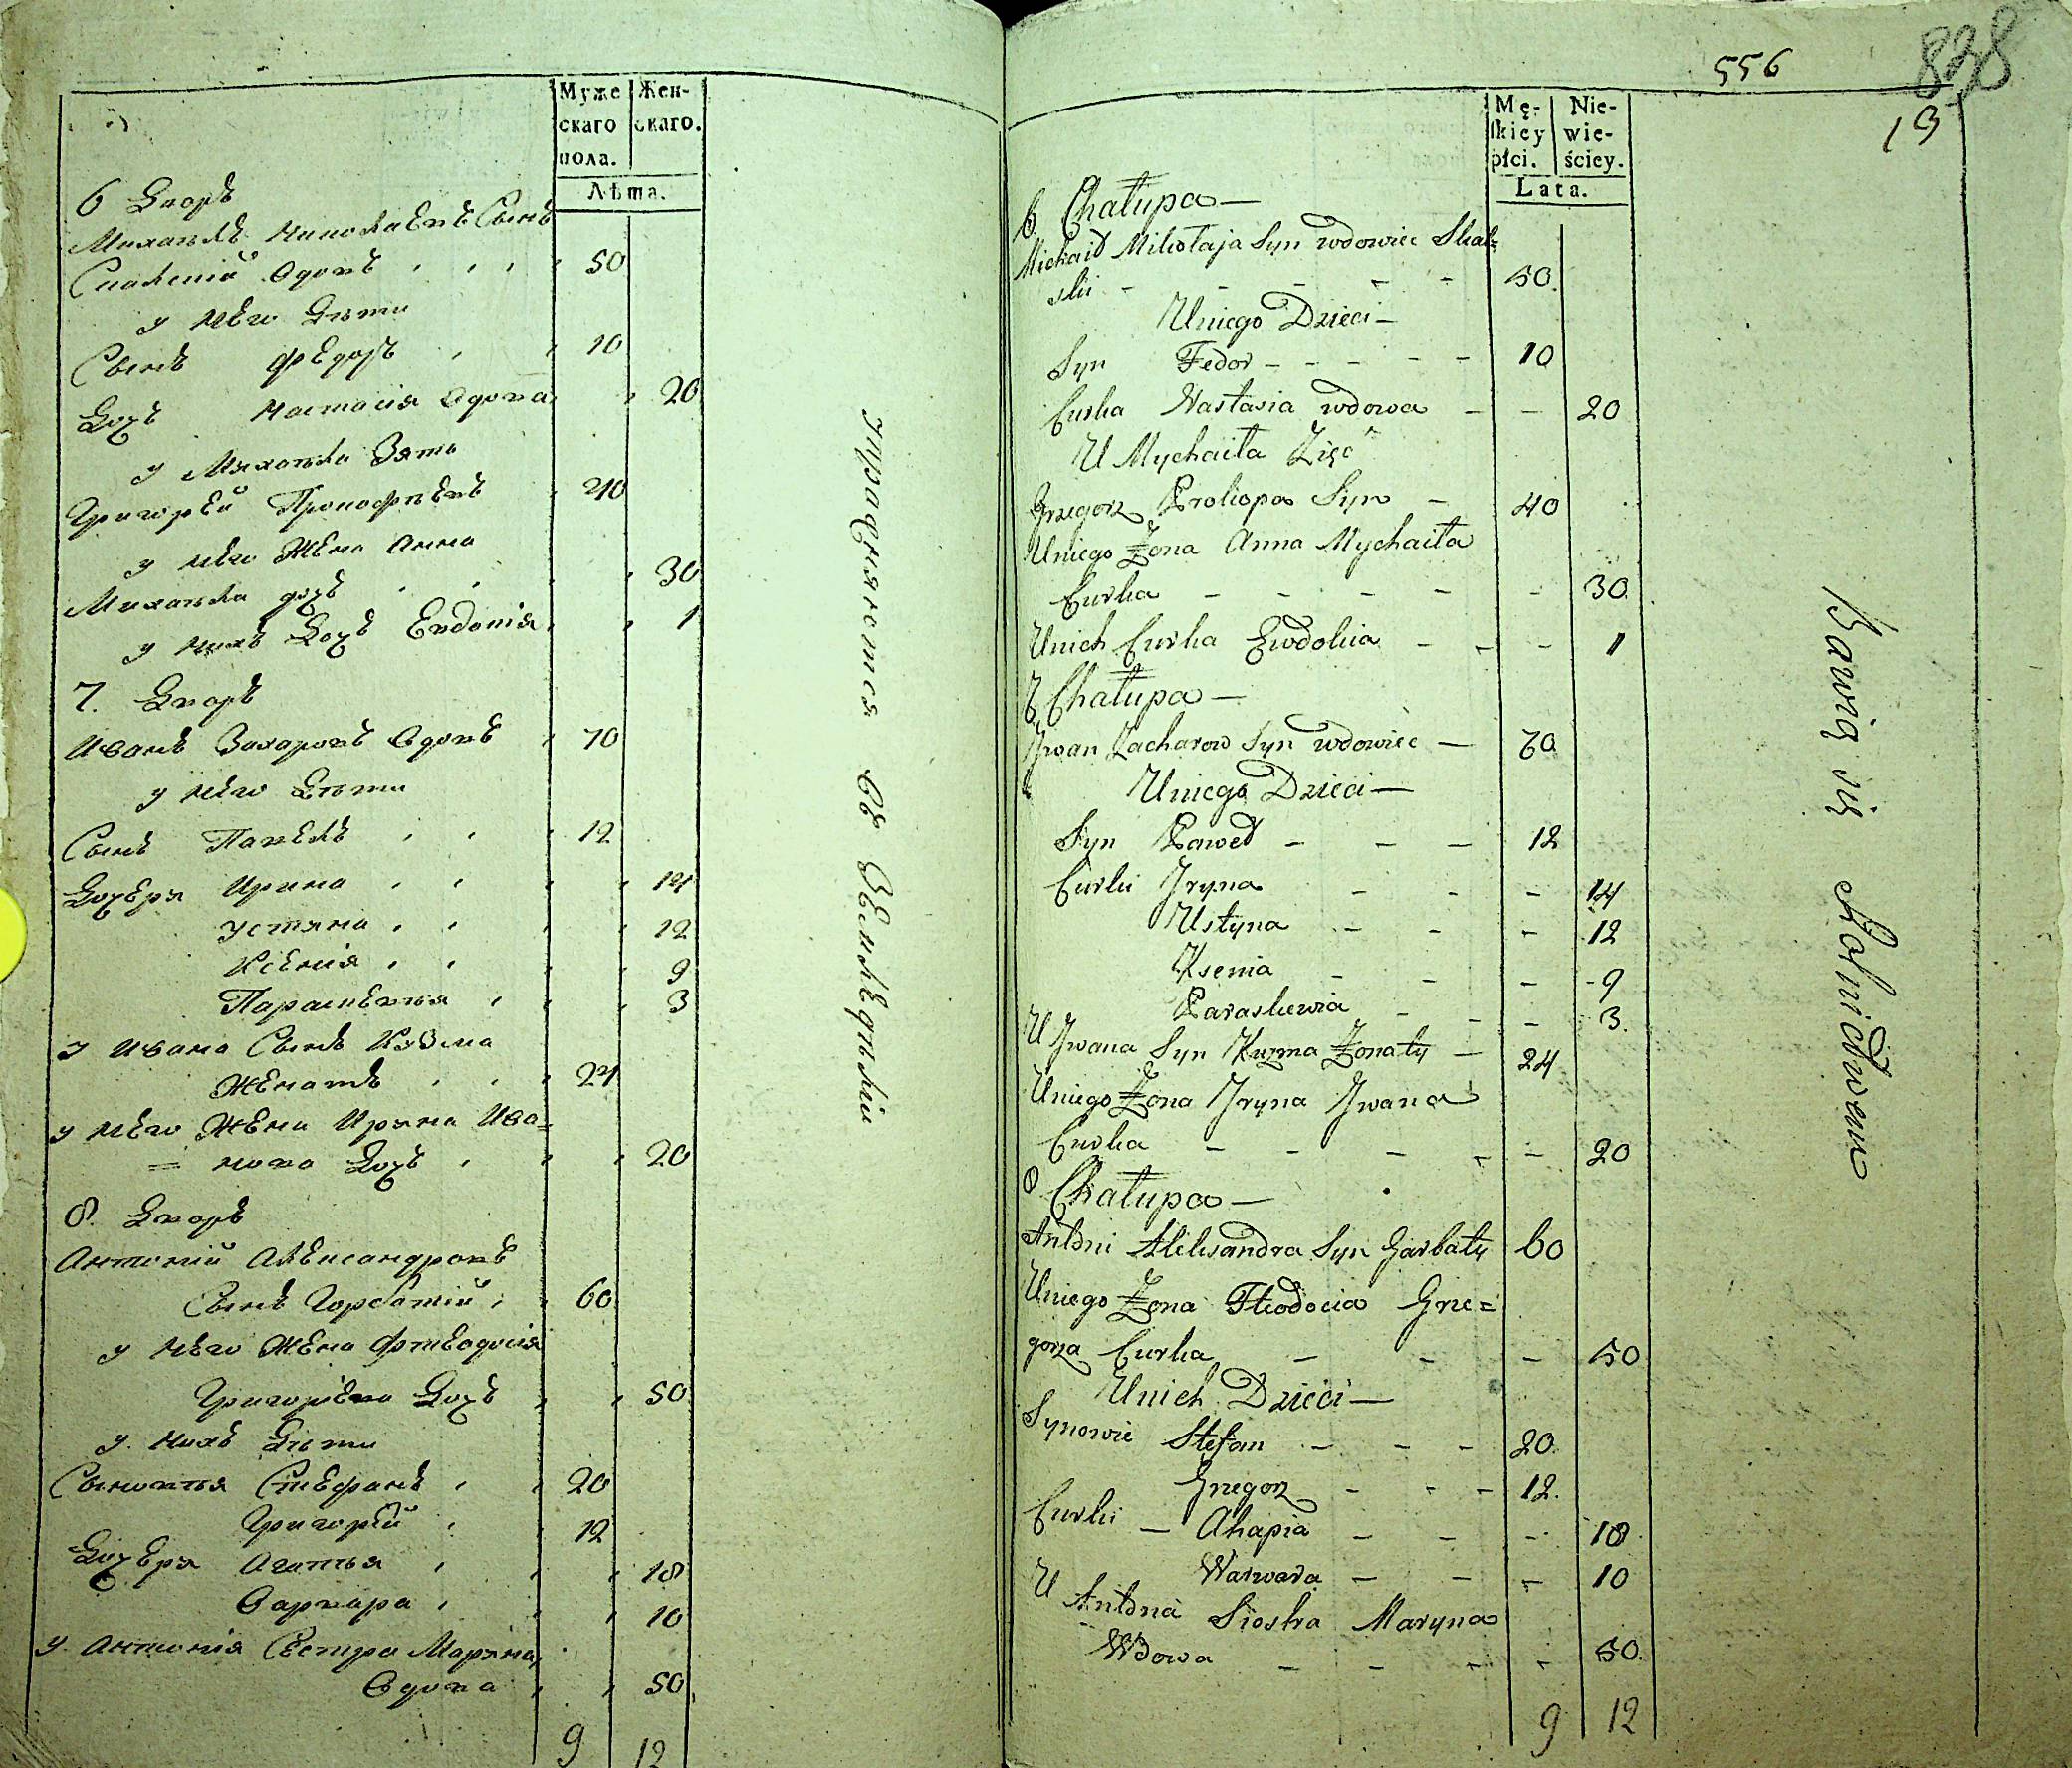 Муже
скаго
пола.
Жен-
скаго.
Лѣта.
6 Дворъ
Михайлъ Николаевъ Сынъ
Скальскій вдовъ 50
у него Дѣти
Сынъ Федоръ 10
Дочь Настасія вдова 20
у Михайла Зять
Григорей Прокофьевъ 40
у него Жена Анна
Михайла дочь 30
у нихъ Дочь Евдокія 1
7. Дворъ
Иванъ Захаровъ вдовъ 70
у него Дѣти
Сынъ Павелъ 12
Дочеря Ирина 14
Устина 12
Ксенія 9
Парасковья 3
у Ивана Сынъ Кузма
Женатъ 24
у него Жена Ирина Ива=
= нова Дочь 20
8. Дворъ
Антоній Александровъ
Сынъ Горбатій 60
у него Жена Фтеодосія
Григоріева Дочь 50
у нихъ Дѣти
Сыновья Стефанъ 20
Григорій 12
Дочеря Агапія 18
Варвара 10
у Антонія Сестра Марина
Вдова 50
9 12
упражняются въ Земледѣліи
556
828
19
Mę-
skiey
płci.
Nie-
wie-
ściey.
Lata.
6. Chałupa —
Michaił Mikołaja Syn wdowiec Skal=
ski - - - - - 50.
Uniego Dzieci —
Syn Fedor - - - - - 10
Curka Nastasia wdowa - - 20
U Mychaiła Zięć
Grzegorz Prokopa Syn - 40
Uniego Żona Anna Mychaiła
Curka - - - - - 30.
Unich Curka Ewdokia - - - 1
7 Chałupa —
Jwan Zacharow Syn wdowiec — 70
Uniego Dzieci —
Syn Paweł - - - 12
Curki Jryna - - - 14
Ustyna - - - 12
Ksenia - - - 9
Paraskewia - - - 3.
U Jwana Syn Kuzma Żonaty — 24
Uniego Żona Jryna Jwana
Curka - - - - - 20
8 Chałupa —
Antoni Alexandra Syn Garbaty 60
Uniego Żona Fteodocia Grze=
gorza Curka - - - 50
Unich Dzieci —
Synowie Stefan - - - 20.
Grzegorz - - - 12.
Curki - Ahapia - - - 18
Warwara - - - 10
U Antona Siostra Maryna
Wdowa - - - - 50.
9 12
Bawią się Rolnictwem